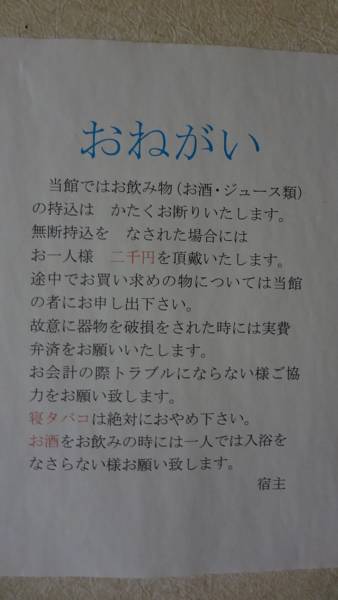 おねがい
当館ではお飲み物(お酒・ジュース類)
の持込は　かたくお断りいたします。
無断持込を　なされた場合には
お一人様　二千円を頂戴いたします。
途中でお買い求めの物については当館
の者にお申し出下さい。
故意に器物を破損をされた時には実費
弁済をお願いいたします。
お会計の際トラブルにならない様ご協
力をお願い致します。
寝タバコは絶対におやめ下さい。
お酒をお飲みの時には一人では入浴を
なさらない様お願い致します。
宿主